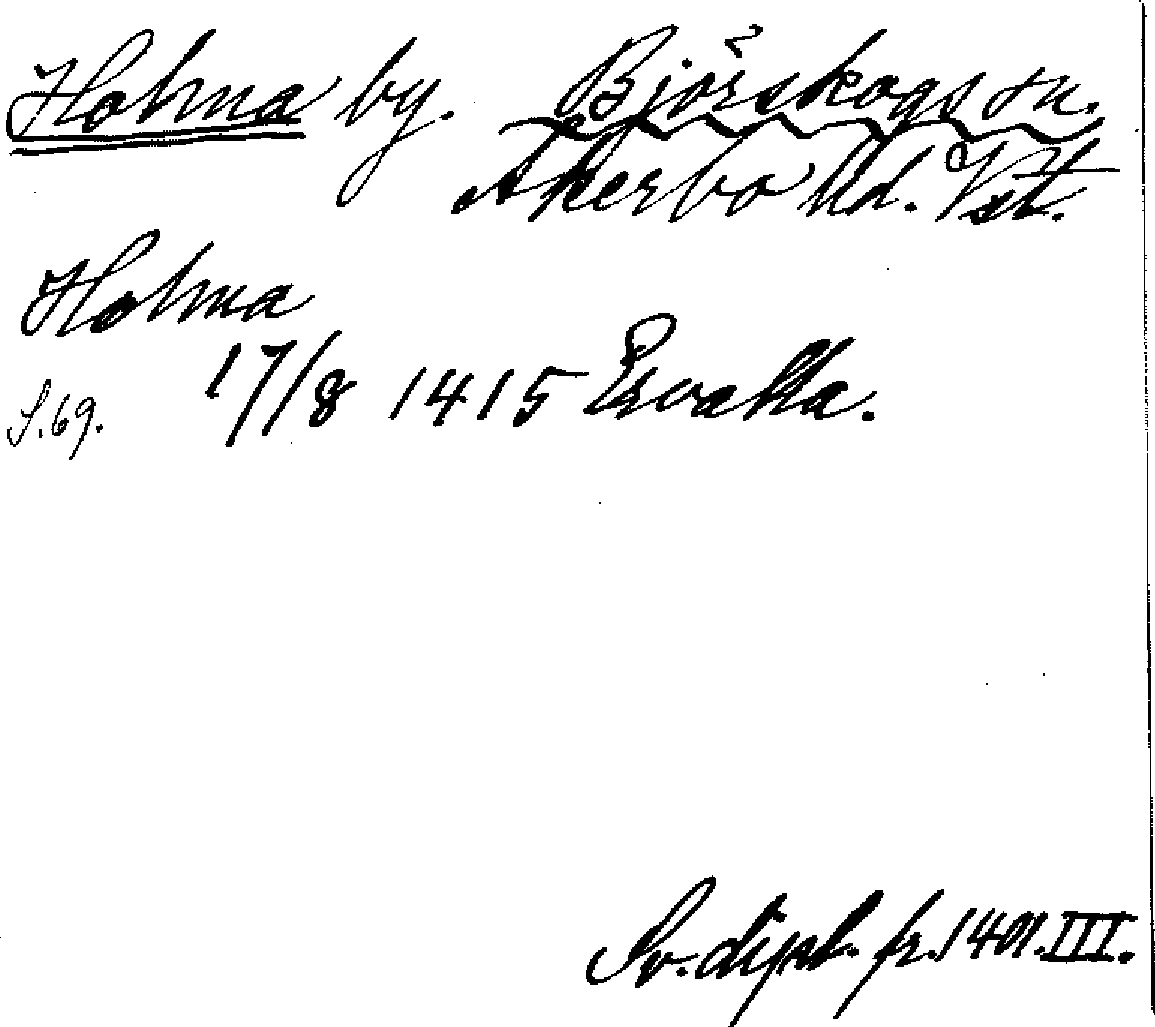 Holma by. Björskogs sn.
Åkerbo hd. Vst.
Holma
S.69. 17/8 1415 Ervalla.
Sv. dipl. fr. 1401. III.